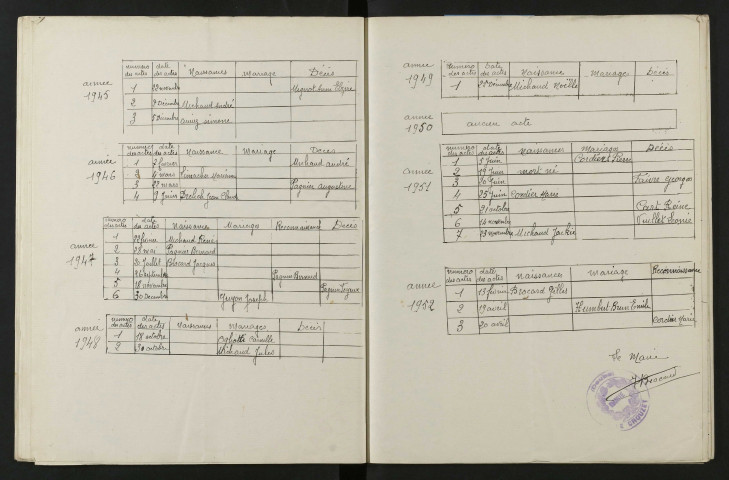 année 1945
numéro des actes date des actes Naissances Mariage Décès
1 22 novembre
2 9 Décembre Michaud André
3 5 Décembre
année 1946
numéro des actes date des actes Naissance Mariage Décès
1 7 février Michaud André
2 4 mars
3 22 mars Pagnier Augustine
4 9 Juin
année 1947
numéro des actes date des actes Naissance Mariage Reconnaissance Décès
1 Michaud René
2 22 mai Pagnier Bernard
3 20 Juillet Brocard Jacques
4 26 septembre Pagnier Bernard
5 18 novembre
6 30 Décembre Guyon Joseph
année 1948
numéro des actes date des actes Naissance Mariage Décès
1 18 octobre Camille
2 30 octobre Michaud Jules
année 1949
Numéro des actes Date des actes Naissance Mariage Décès
1 25 Décembre Michaud Noëlle
année 1950
aucun acte
année 1951
numéro des actes date des actes naissances Mariages Décès
1 5 Juin Cordier Pierre
2 19 Juin mort né
3 20 Juin Faivre Georges
4 25 Juin Cordier Marie
5 21 octobre
6 14 novembre
7 28 novembre Michaud Jackie
année 1952
numéro des actes date des actes naissance mariage Reconnaissance
1 13 février Brocard Gilles
2 19 avril Humbert Emile
3 20 avril Cordier Marie
Le Maire
J Brocard